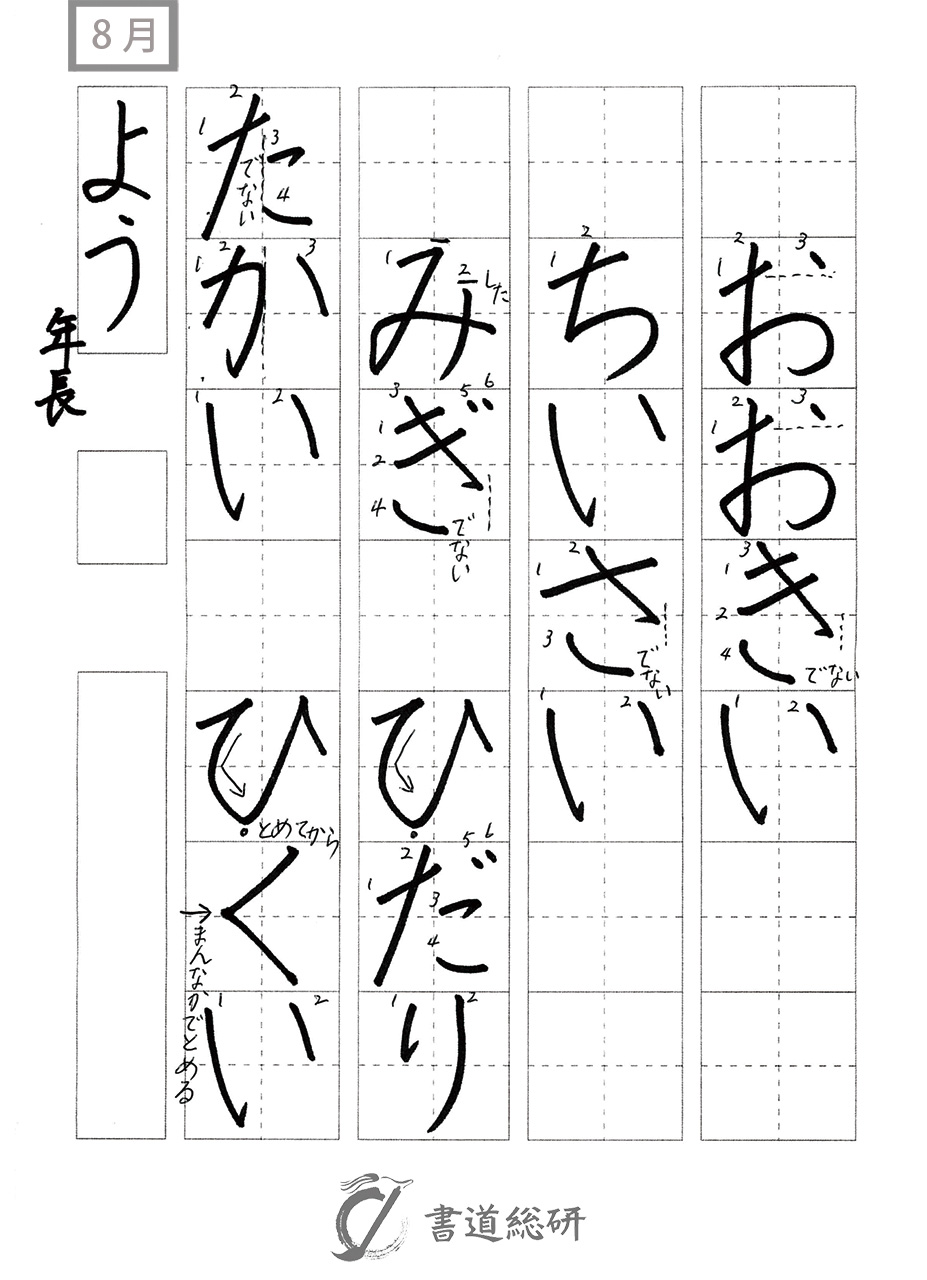 8月
おおきい
ちいさい
みぎ ひだり
たかい ひくい
よう
年長
でない
でない
した
でない
でない
とめてから
まんなかでとめる
書道総研